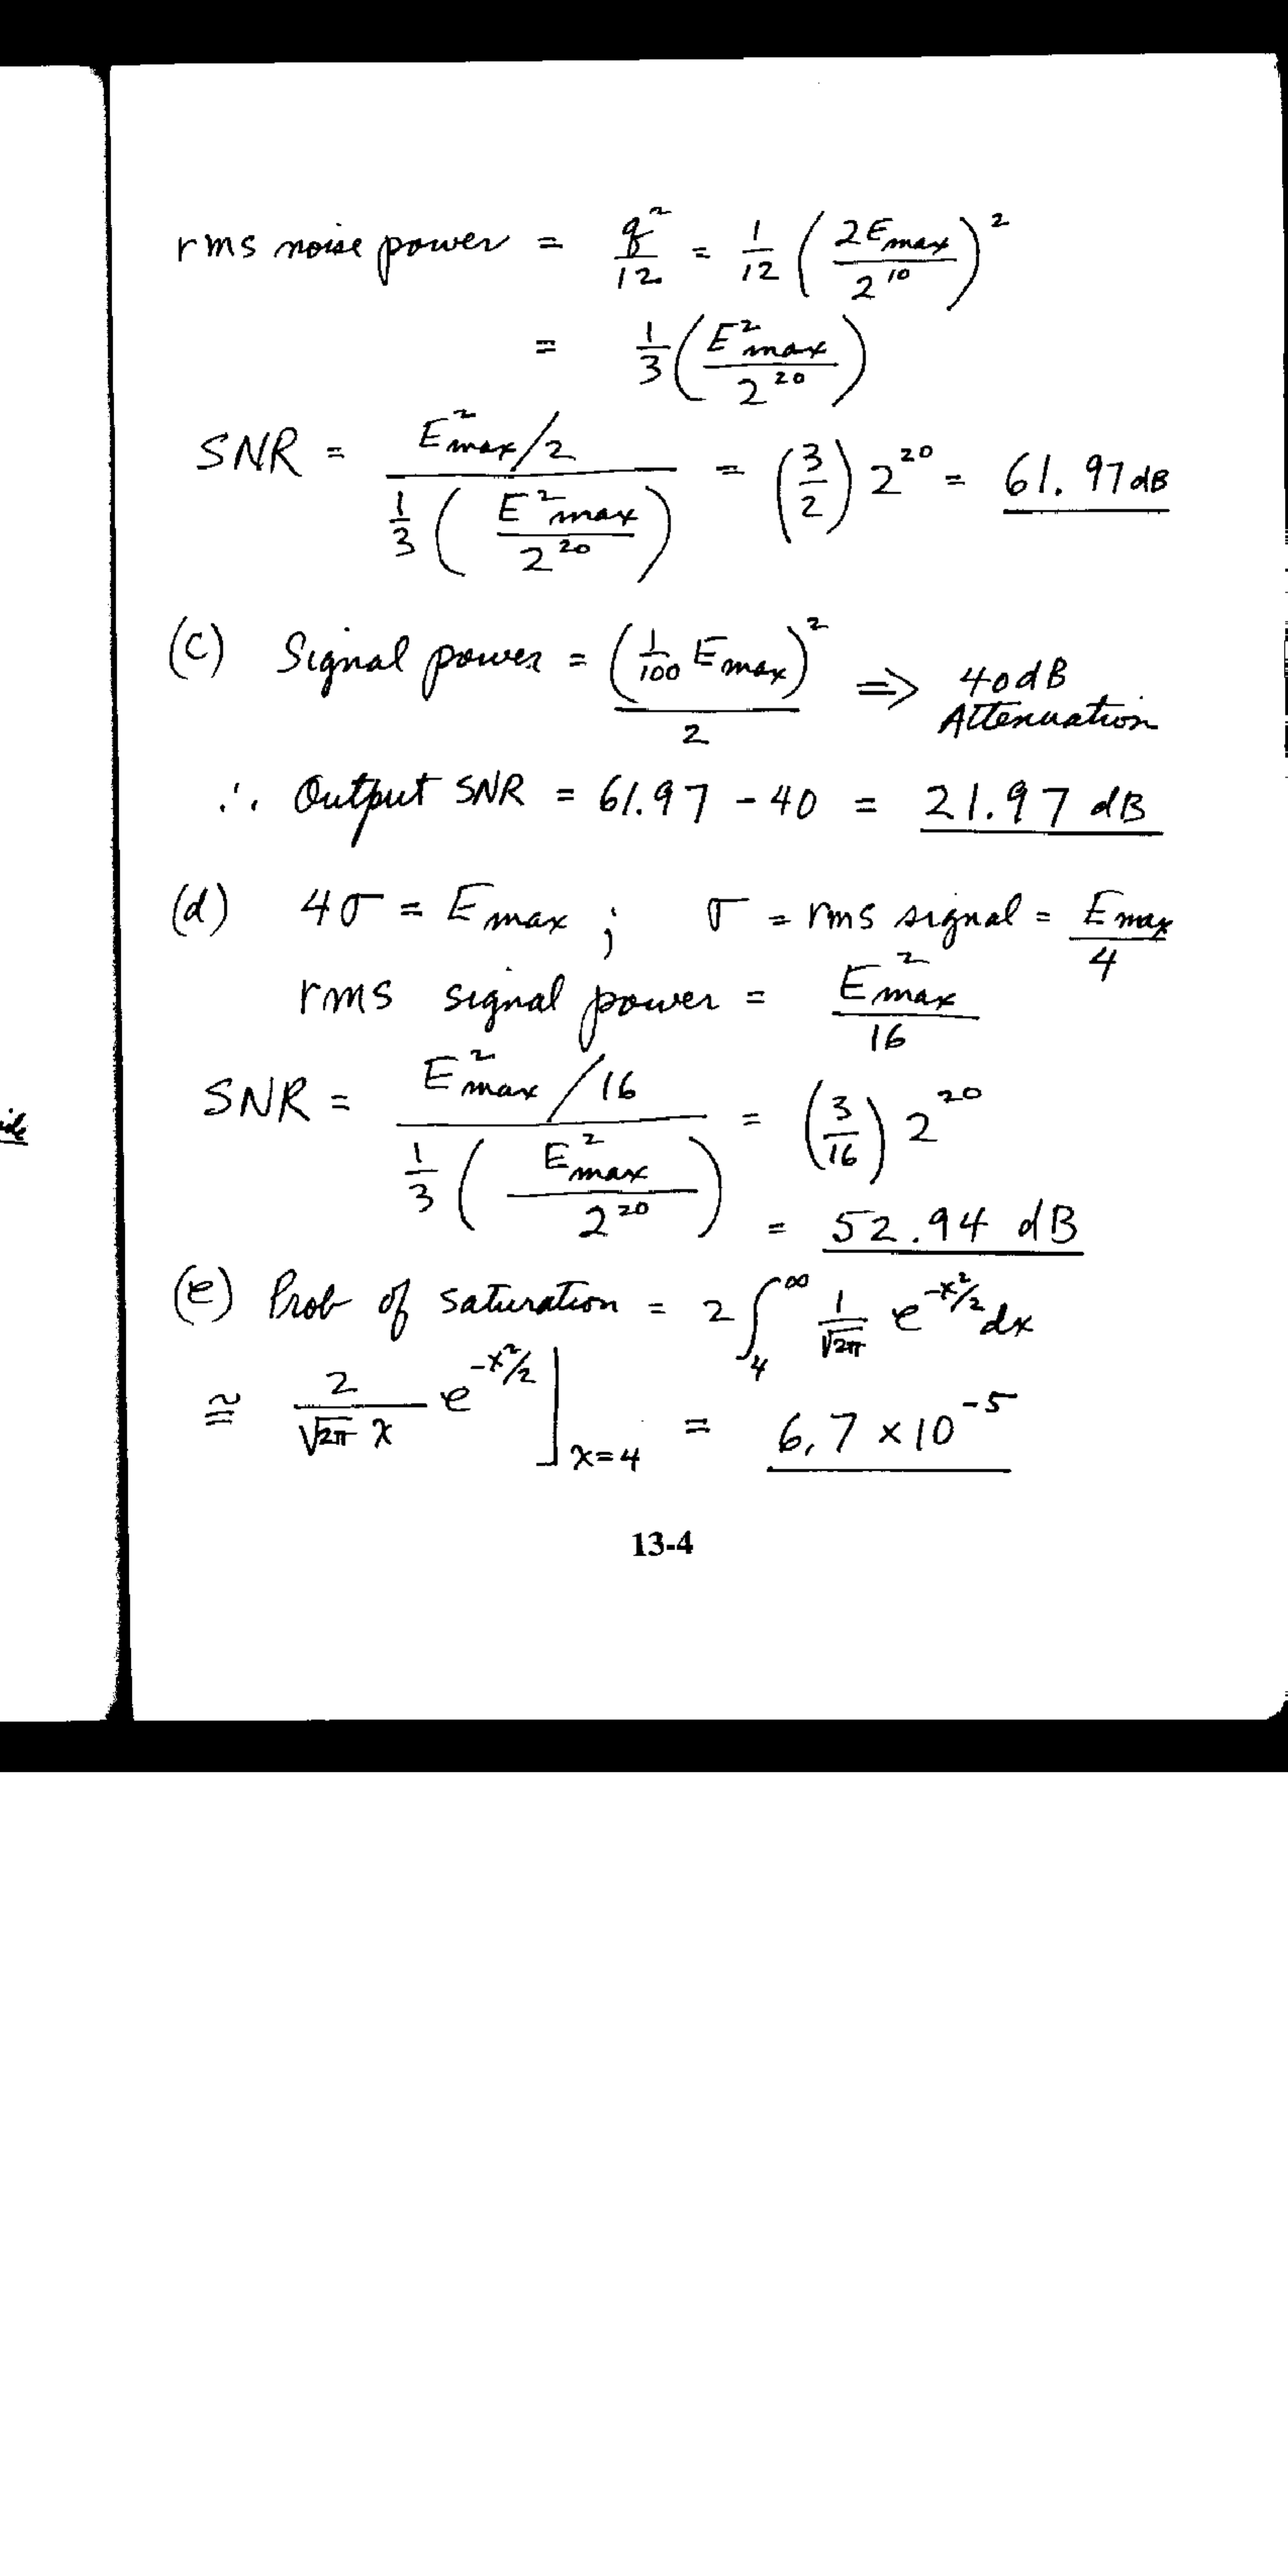 rms noise power = q²/12 = 1/12 (2Emax/2^10)²
= 1/3 (E²max/2^20)
SNR = (E²max/2) / (1/3 (E²max/2^20)) = (3/2) 2^20 = 61.97 dB
(c) Signal power = (1/100 Emax)²/2 ⇒ 40 dB Attenuation
∴ Output SNR = 61.97 - 40 = 21.97 dB
(d) 4σ = Emax ; σ = rms signal = Emax/4
rms signal power = E²max/16
SNR = (E²max/16) / (1/3 (E²max/2^20)) = (3/16) 2^20
= 52.94 dB
(e) Prob of saturation = 2 ∫₄^∞ 1/√2π e^(-x²/2) dx
≅ 2/(√2π x) e^(-x²/2) ]x=4 = 6.7 × 10^-5
13-4